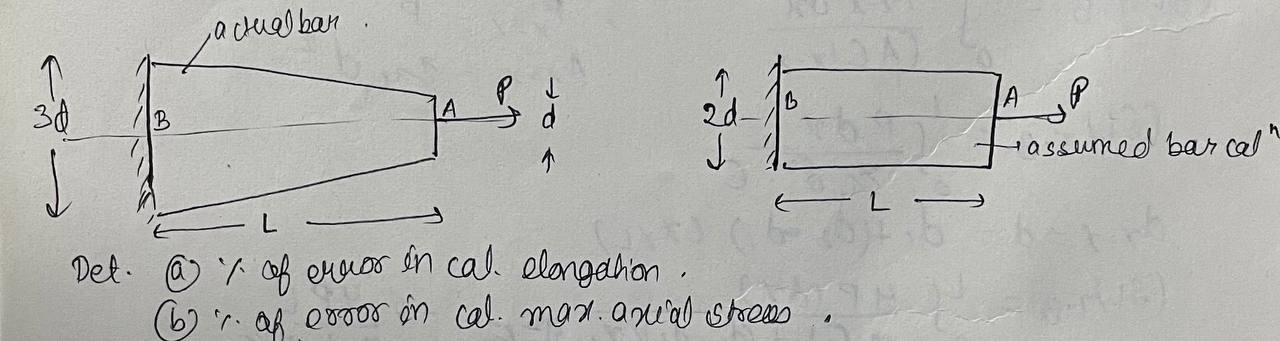 actual bar.
3d
B
A
P
d
L
2d
B
A
P
assumed bar calⁿ
L
Det. (a) % of error in cal. elongation.
(b) % of error in cal. max. axial stress.